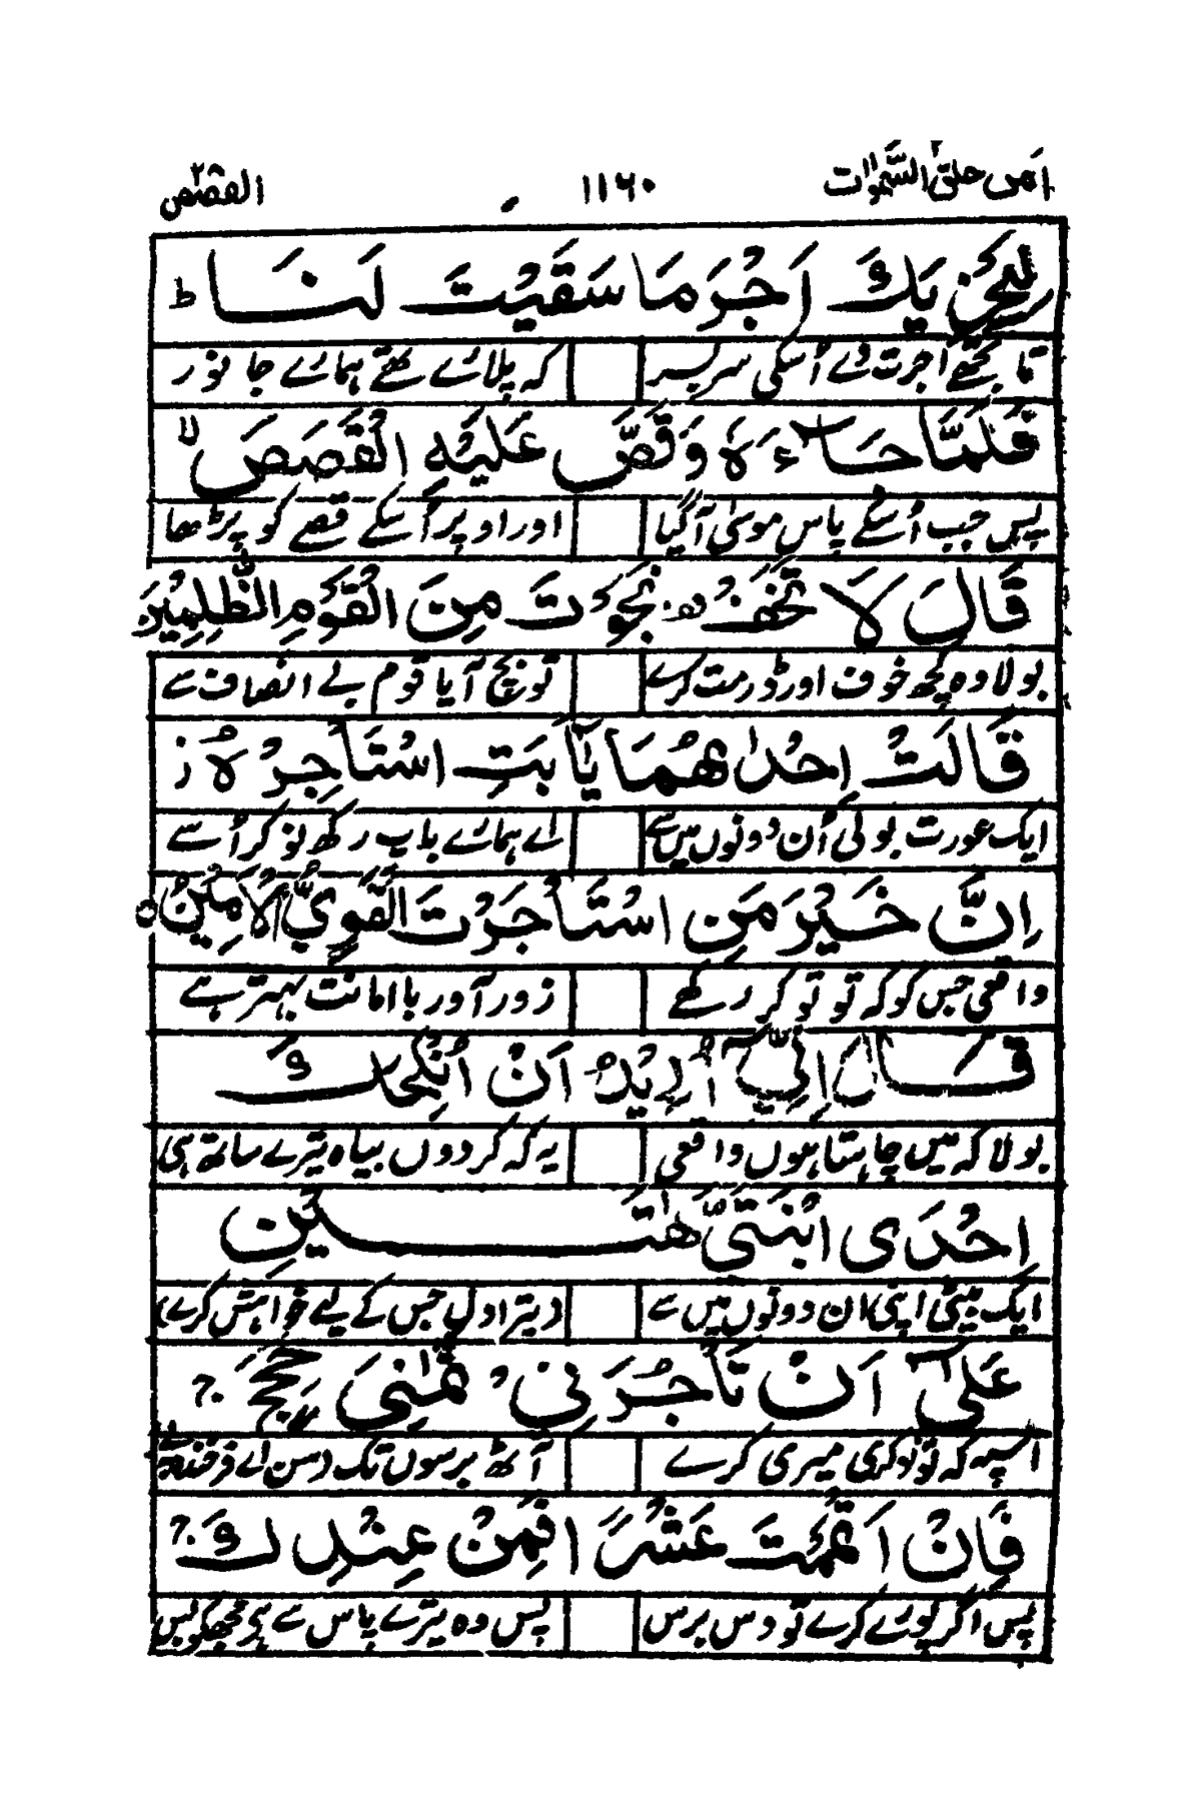 امن خلق السموات ۲۰ ۱۱۶۰ القصص ۲۸
لِيَجْزِيَكَ اَجْرَ مَا سَقَيْتَ لَنَا ط
تا تجھے اجرت دے اُسکی سر بسر کہ پلائے تھے ہمارے جانور
فَلَمَّا جَآءَهٗ وَقَصَّ عَلَيْهِ الْقَصَصَ لا
پس جب اُسکے پاس موسیٰ آگیا اور اوپر اُسکے قصے کو پڑھا
قَالَ لَا تَخَفْ نَجَوْتَ مِنَ الْقَوْمِ الظّٰلِمِيْنَ
بولا وہ کچھ خوف اور ڈر مت کرے تو بچ آیا قوم بے انصاف سے
قَالَتْ اِحْدٰىهُمَا يٰٓاَبَتِ اسْتَاْجِرْهُ ز
ایک عورت بولی اُن دونوں میں سے اے ہمارے باپ رکھ نوکر اُسے
اِنَّ خَيْرَ مَنِ اسْتَاْجَرْتَ الْقَوِيُّ الْاَمِيْنُ ○
واقعی جس کو کہ تو نوکر رکھے زور آور با امانت بہتر ہے
قَالَ اِنِّيْٓ اُرِيْدُ اَنْ اُنْكِحَكَ
بولا کہ میں چاہتا ہوں واقعی یہ کہ کر دوں بیاہ تیرے ساتھ ہی
اِحْدَى ابْنَتَيَّ هٰتَيْنِ
ایک بیٹی اپنی ان دونوں میں سے (تیرا دل جس کے لیے خواہش کرے)
عَلٰٓى اَنْ تَاْجُرَنِيْ ثَمٰنِيَ حِجَجٍ ج
اسپہ کہ تو نوکری میری کرے آٹھ برسوں تک
فَاِنْ اَتْمَمْتَ عَشْرًا فَمِنْ عِنْدِكَ ج
پس اگر پورے کرے تو دس برس پس وہ تیرے پاس سے ہی